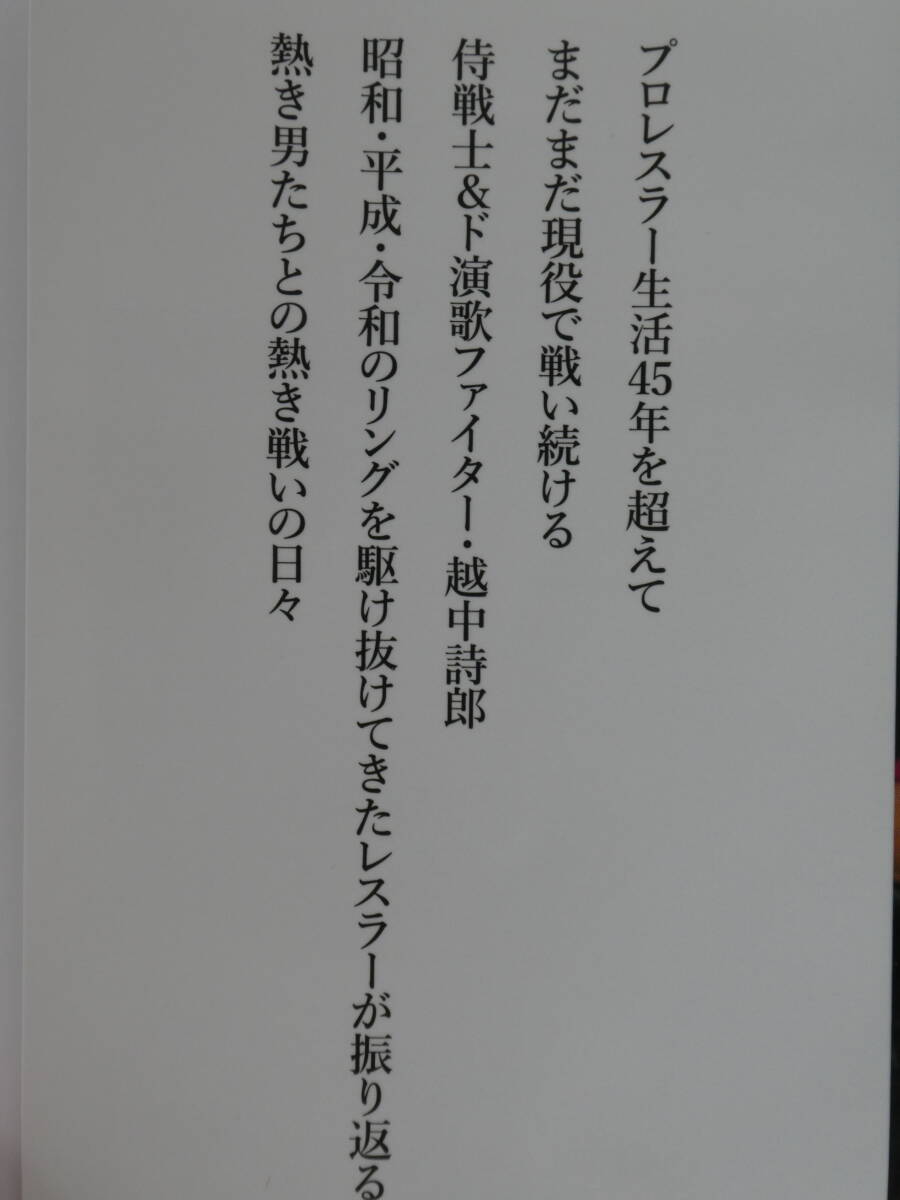 プロレスラー生活45年を超えて
まだまだ現役で戦い続ける
侍戦士&ド演歌ファイター・越中詩郎
昭和・平成・令和のリングを駆け抜けてきたレスラーが振り返る
熱き男たちとの熱き戦いの日々